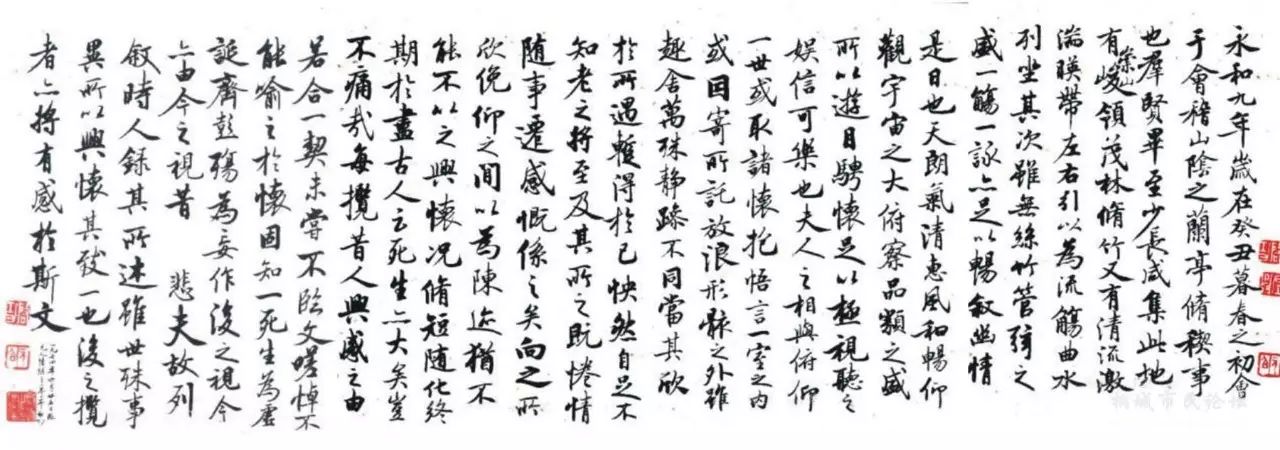 永和九年歲在癸丑暮春之初會
于會稽山陰之蘭亭脩稧事
也羣賢畢至少長咸集此地
有崇山峻領茂林脩竹又有清流激
湍暎帶左右引以為流觴曲水
列坐其次雖無絲竹管弦之
盛一觴一詠亦足以暢敘幽情
是日也天朗氣清惠風和暢仰
觀宇宙之大俯察品類之盛
所以遊目騁懷足以極視聽之
娛信可樂也夫人之相與俯仰
一世或取諸懷抱悟言一室之內
或因寄所託放浪形骸之外雖
趣舍萬殊静躁不同當其欣
於所遇蹔得於己怏然自足不
知老之將至及其所之既惓情
随事遷感慨係之矣向之所
欣俛仰之間以為陳迹猶不
能不以之興懷況脩短隨化終
期於盡古人云死生亦大矣豈
不痛哉每攬昔人興感之由
若合一契未嘗不臨文嗟悼不
能喻之於懷固知一死生為虛
誕齊彭殤為妄作後之視今
亦由今之視昔 悲夫故列
敘時人錄其所述雖世殊事
異所以興懷其致一也後之攬
者亦將有感於斯文
桐城市民论坛